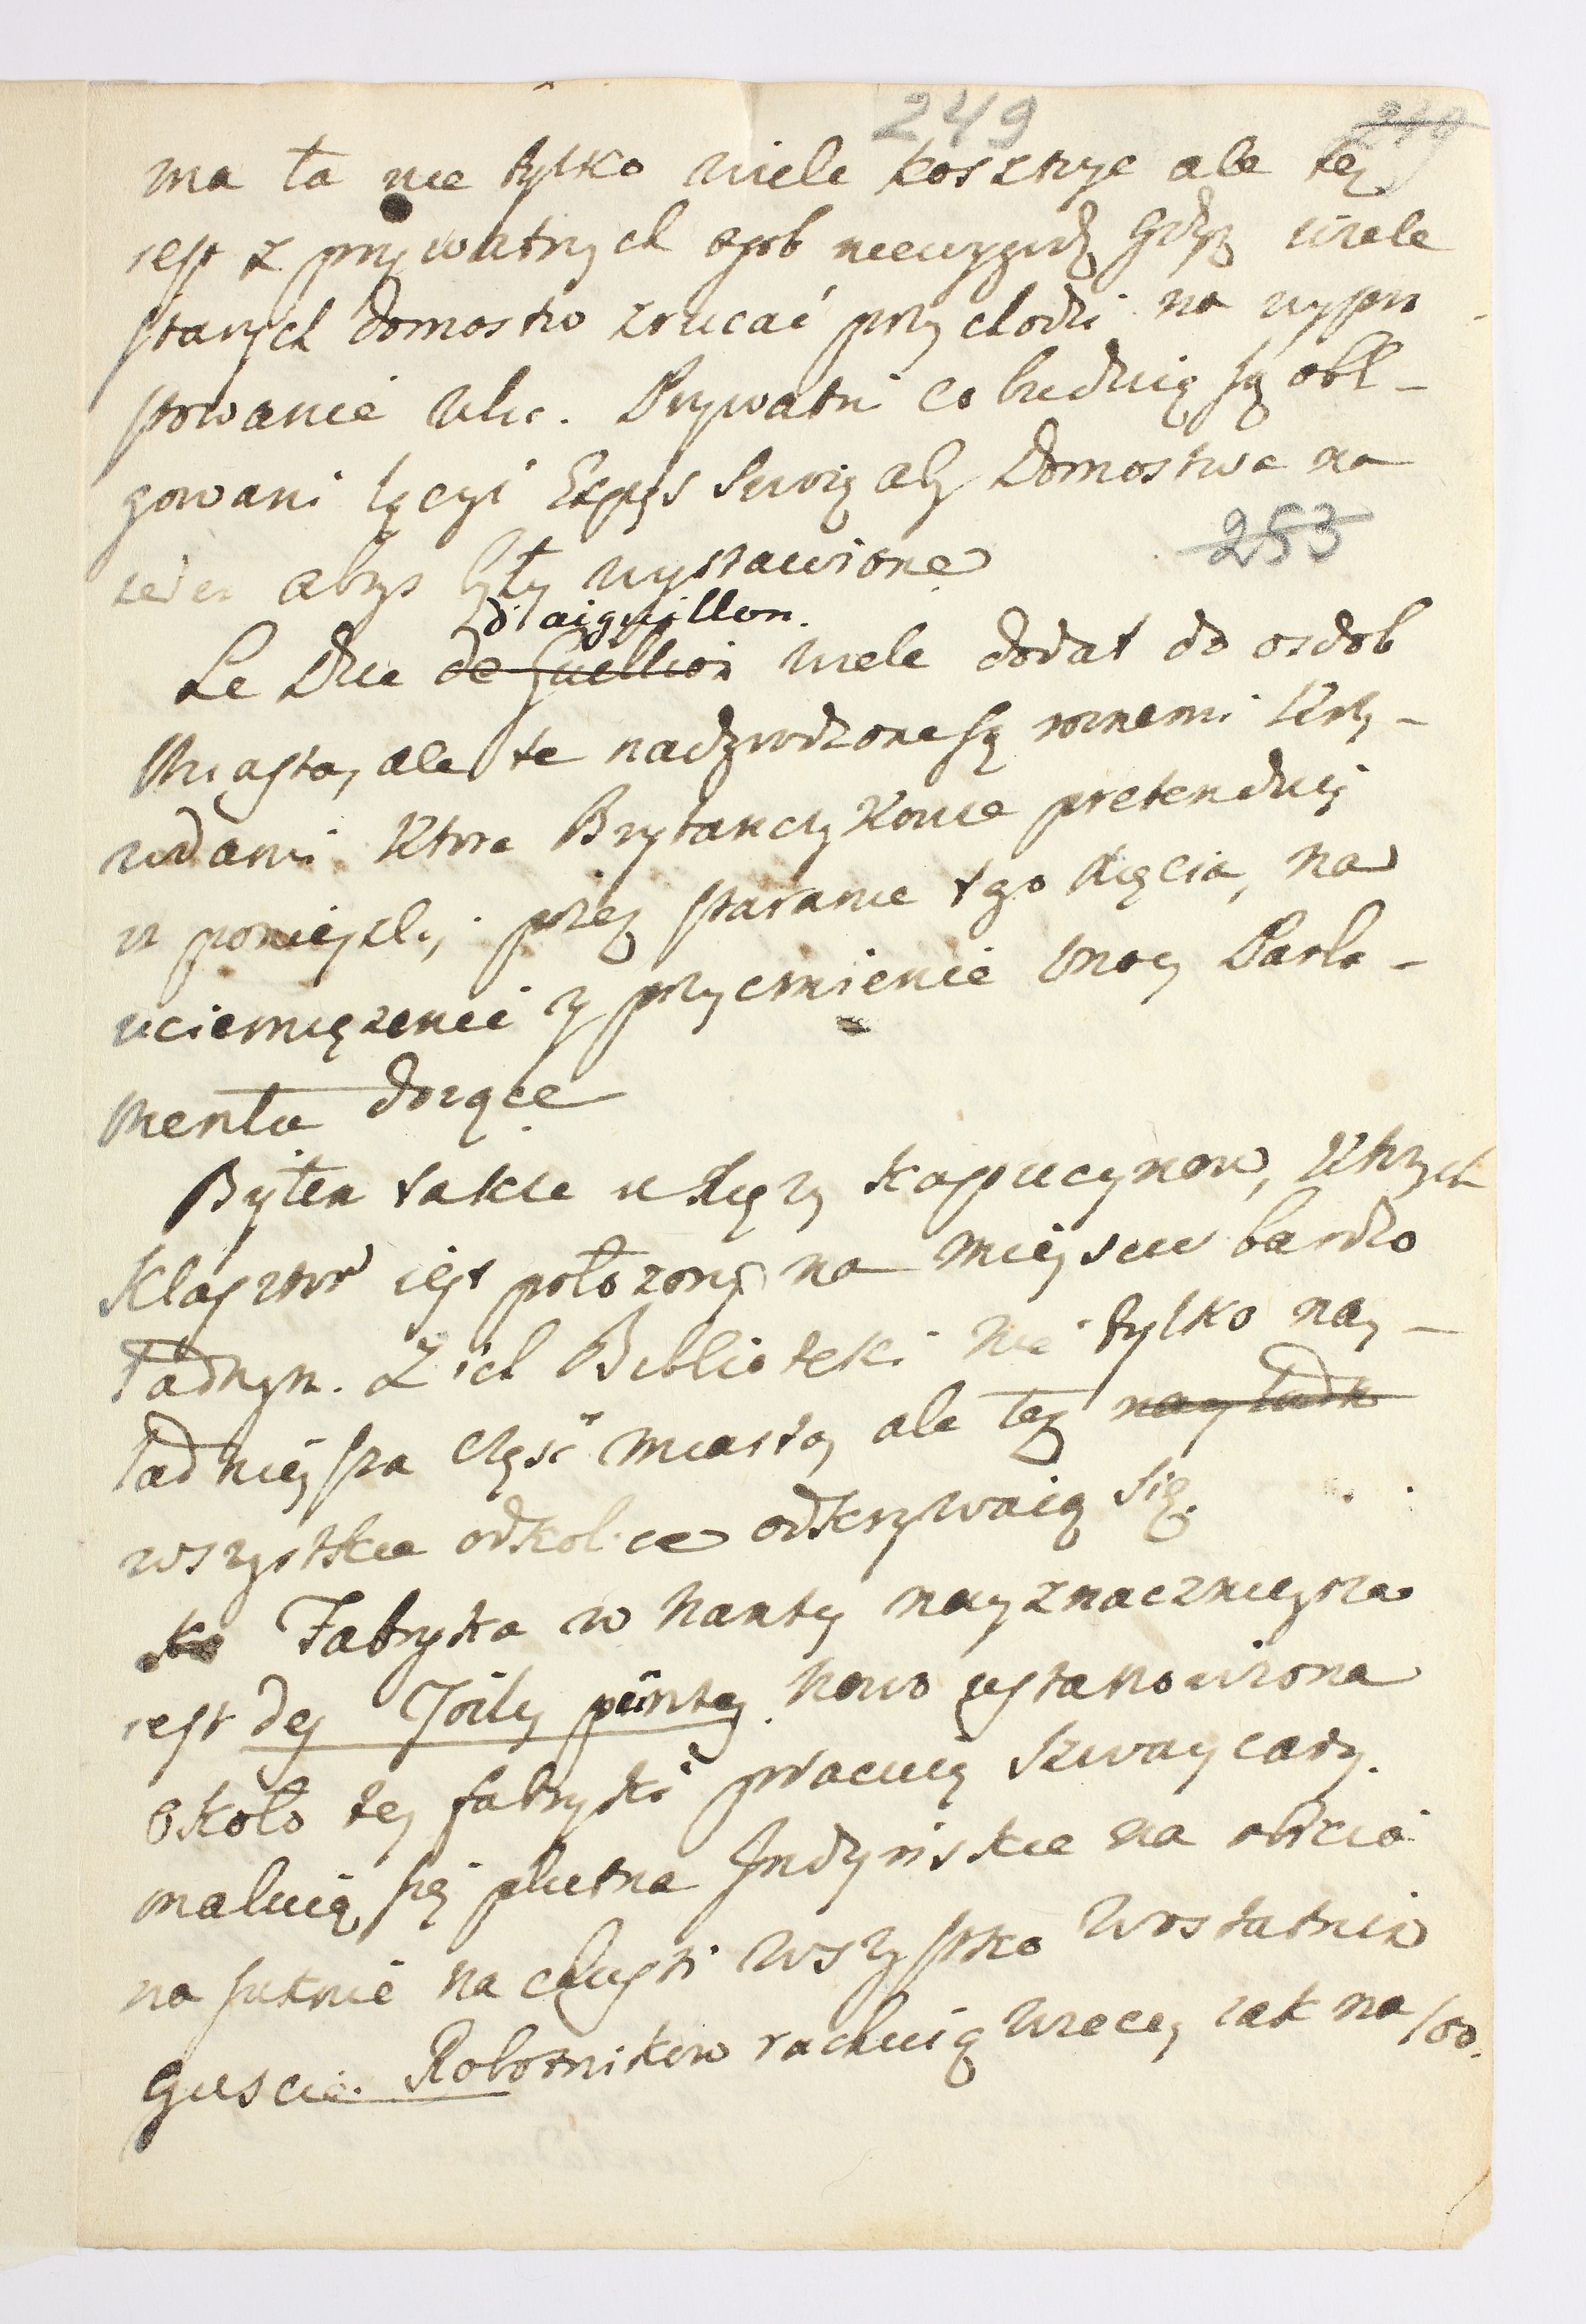 249 249
ma ta nie tylko wiele kosztuje ale tez
iest z prywatnych osob niewygodą gdyz wiele
starych domostw zrucać przychodzi na wypro
stowanie ulic. Prywatni co buduią są obl-
gowani łączyć swoią aby Domostwa na
ieden abrys były wystawione
253
d'aiguillon.
Le Duc de Guillion wiele dodał do osdob
Miasta, ale te nadgrodzone są roznemi Krzy-
wdami ktore Brytanczykowie pretenduią
iz ponieśli, przez staranie tego Xięcia, na
uciemięzenie y przycmienie mocy Parla-
mentu dozące
Byłem takze u Xięzy Kapucynow, ktorych
Klasztor iest połozony na mieyscu bardzo
ładnym. Z ich Biblioteki nie tylko nay-
ładnieysza częsć miasta, ale tez nayładn
wszystkie odkolice odkrywaią się.
ko Fabryka w Nantes nayznacznieysza
iest des Toiles peintes nowo ustanowiona
około tey fabryki pracuią Szwaycary.
maluią się płutna Indyiskie na obicia
na suknie na chustki wszystko w ostatnim
guscie. Robotnikow rachuią więcey iak na 100.